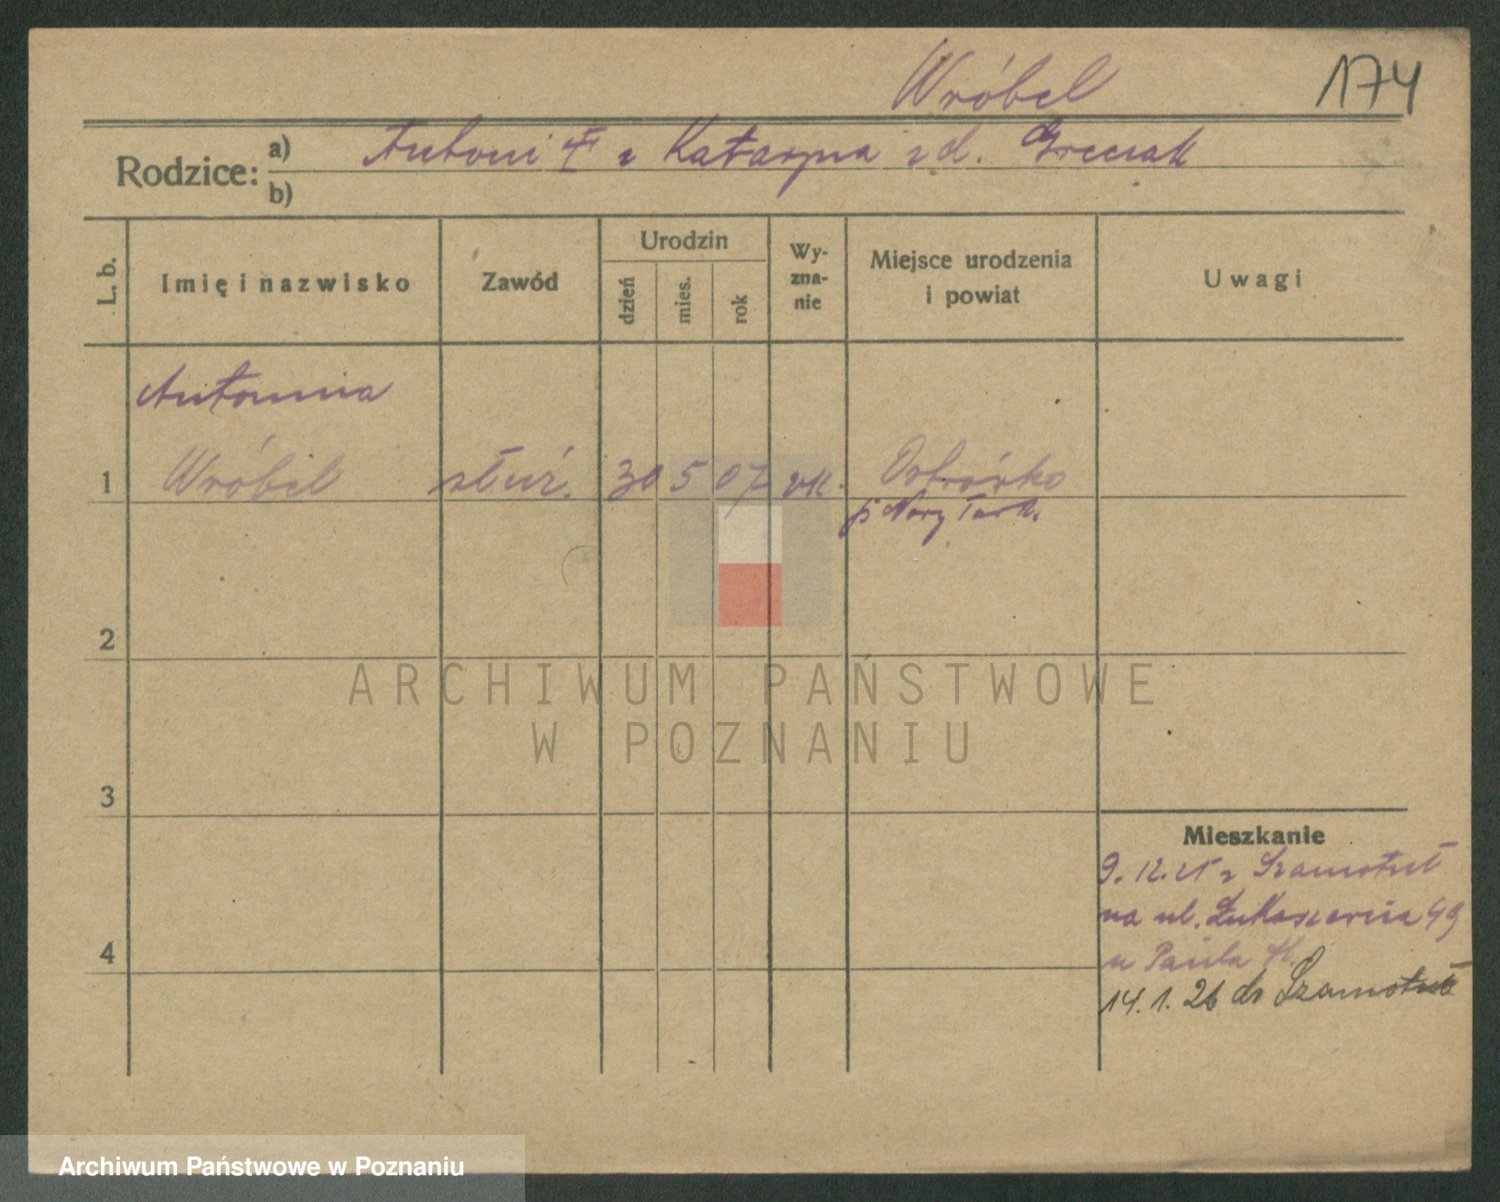 Wróbel
174
Rodzice: a) Antoni i Katarzyna zd.
b)
L. b.
Imię i nazwisko
Zawód
Urodzin
dzień
mies.
rok
Wy-
zna-
nie
Miejsce urodzenia
i powiat
Uwagi
Antonina
1 Wróbel służ. 30 5 07 rk. Ostrówko
p. Nowy Tom.
2
ARCHIWUM PAŃSTWOWE
W POZNANIU
3
Mieszkanie
9. 12. 25 z Szamotuł
na ul. 49
4
u H.
14. 1. 26 do Szamotuł
Archiwum Państwowe w Poznaniu